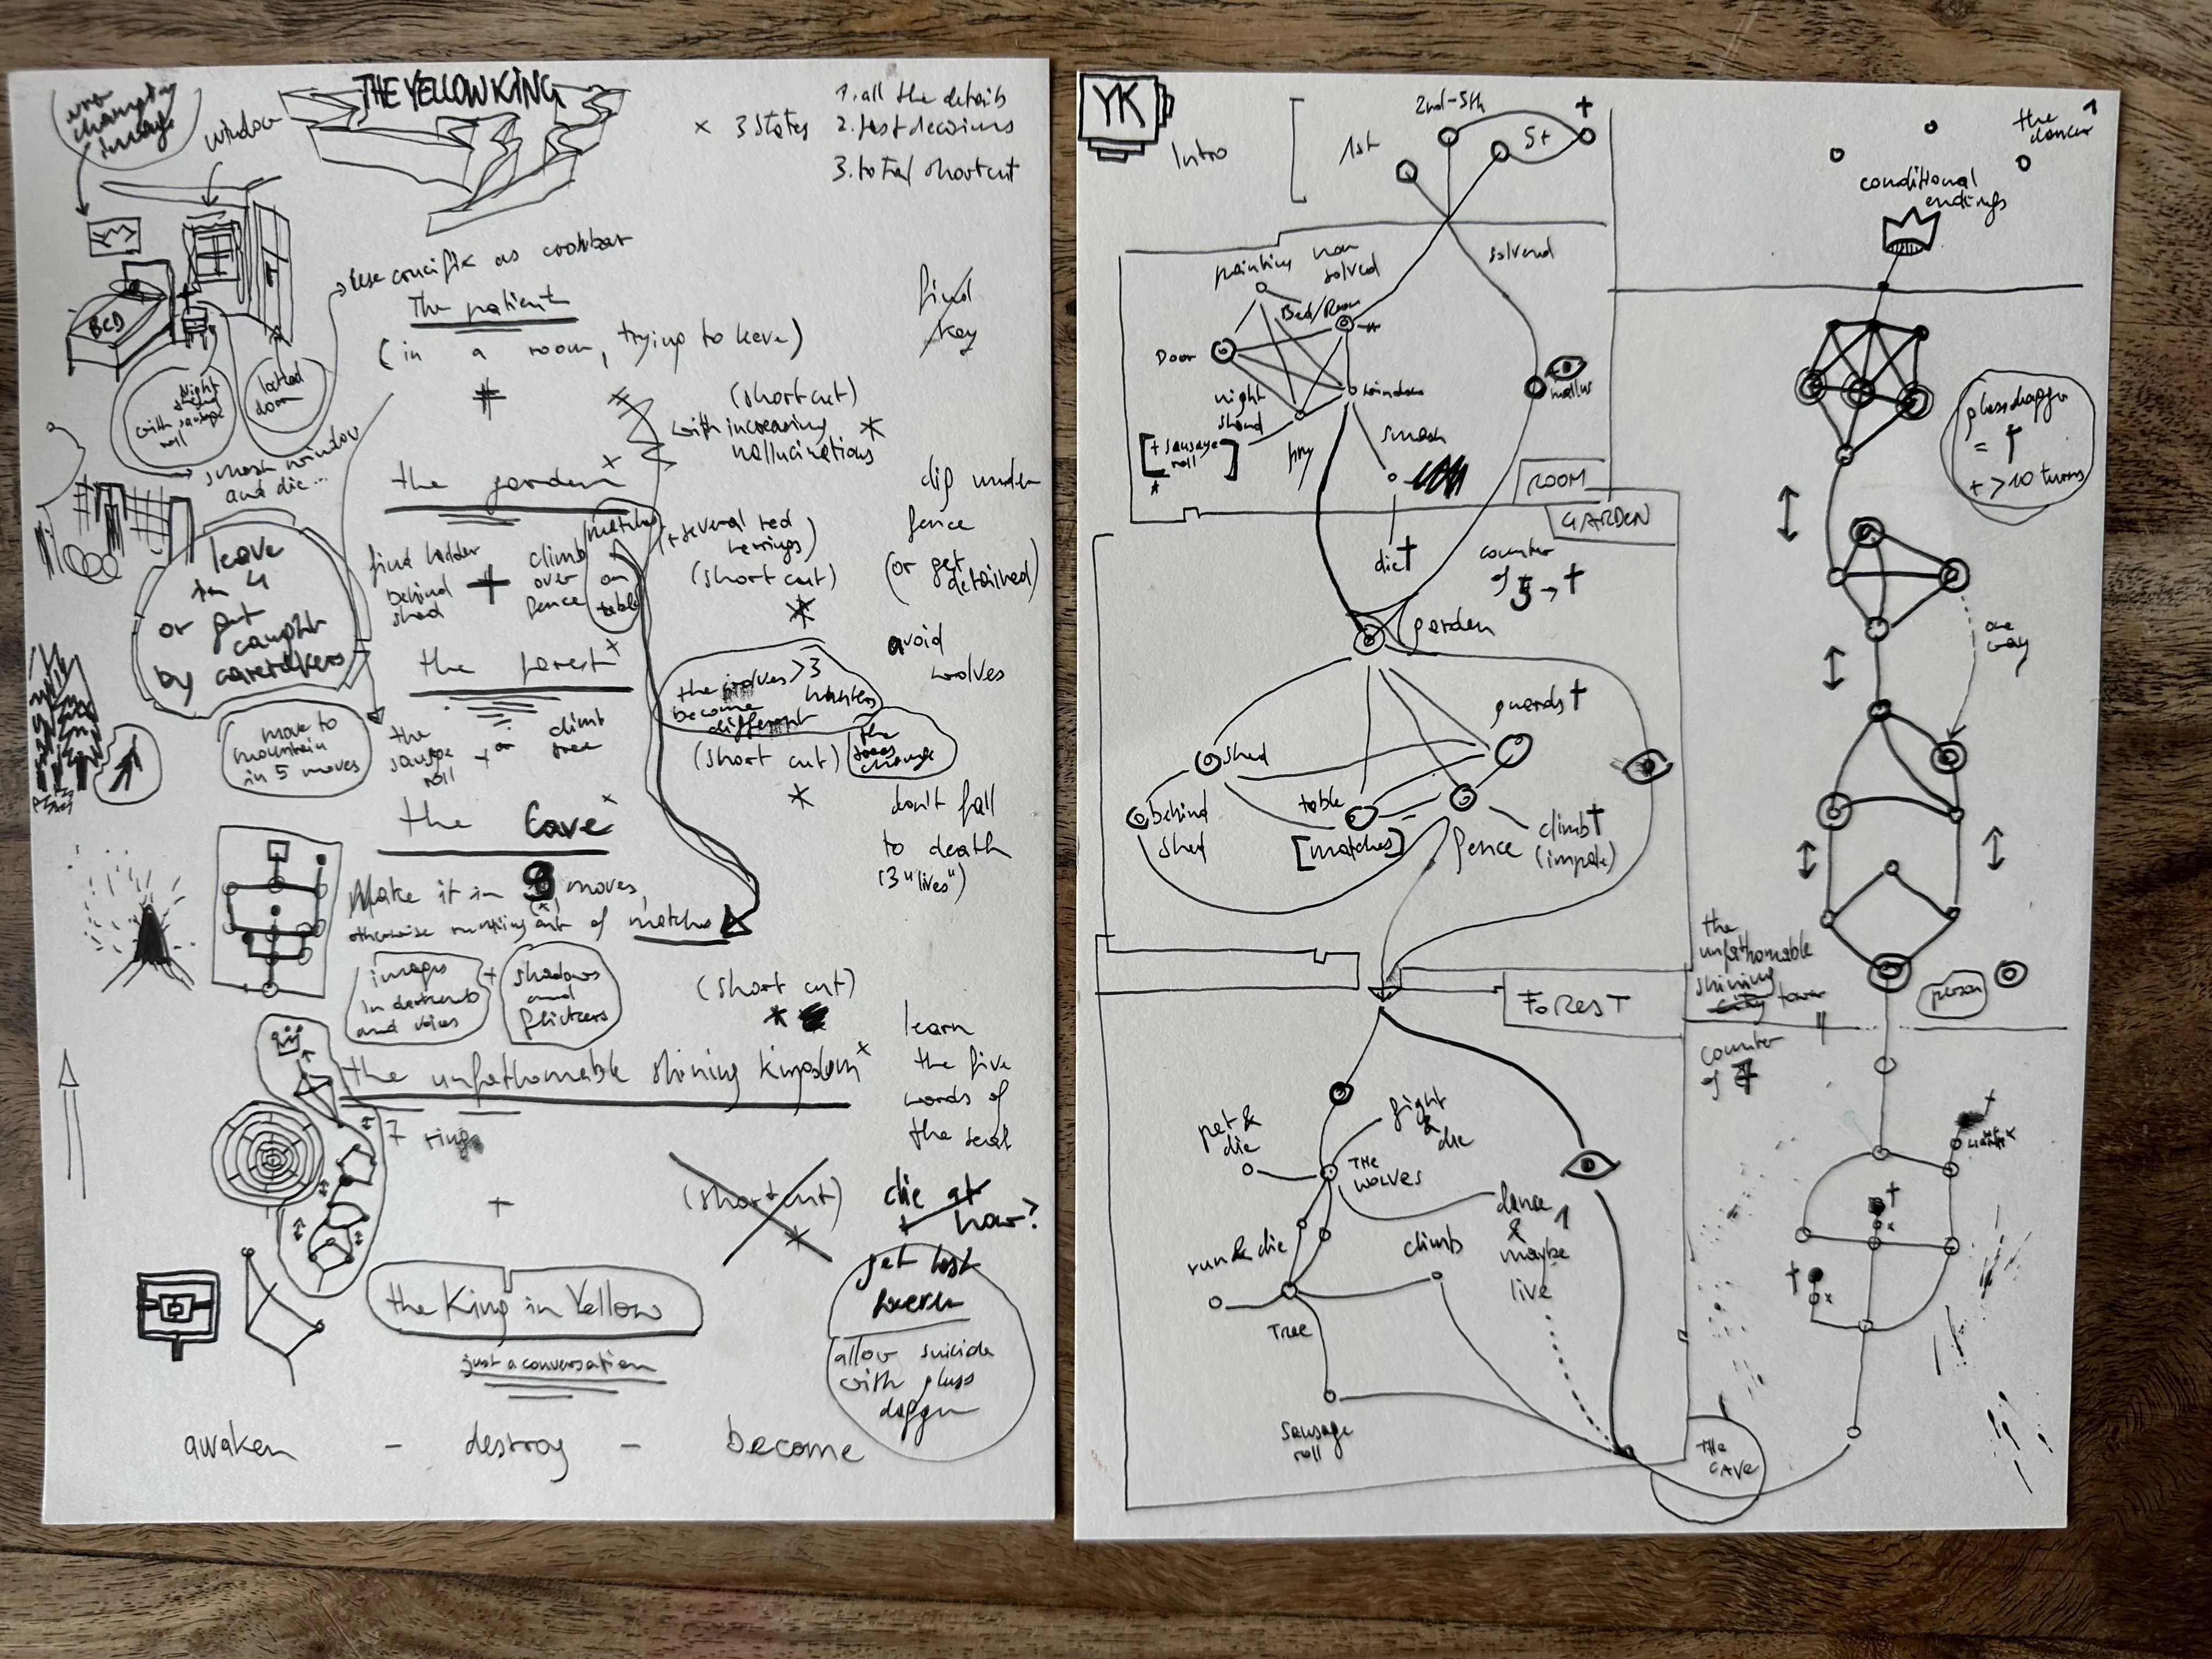 THE YELLOW KING
window
× 3 states
1. all the details
2. fast decisions
3. total shortcut
BED
use crucifix as crowbar
The patient
(in a room, trying to leave)
find
key
with sausage
roll
locked
door
smash window
and die...
(short cut)
with increasing
hallucinations
the garden
matches
on
table
(+ several red
herrings)
(short cut)
find ladder
behind
shed
+
climb
over
fence
dig under
fence
(or get
detained)
leave
in 4
or get
caught
by caretakers
the forest
avoid
wolves
the wolves >3
become
different
hunters
(short cut)
the
trees
change
move to
mountain
in 5 moves
the
sausage
roll
climb
tree
don't fall
to death
(3 "lives")
the Cave
Make it in 9 moves,
otherwise running out of matches
images
in darkness
and voices
+
shadows
and
flickers
(short cut)
the unfathomable shining kingdom
7 rings
+
(short cut)
learn
the five
words of
the seal
die at
how?
get lost
allow suicide
with glass
dagger
the King in Yellow
just a conversation
awaken - destroy - become
YK
Intro
1st
2nd-5th
5+
solved
painting
non
solved
Bed/Room
Door
window
night
stand
[+ sausage
roll]
smash
die†
ROOM
GARDEN
counter
of 5 → †
garden
guards†
shed
behind
shed
table
[matches]
fence
climb†
(impale)
FOREST
pet &
die
fight
&
die
THE
WOLVES
dance
&
maybe
live
run & die
climb
Tree
Sausage
roll
THE
CAVE
the
dancer
conditional
endings
glass dagger
= †
+ >10 turns
one
way
the
unfathomable
shining
city tower
person
counter
of 7